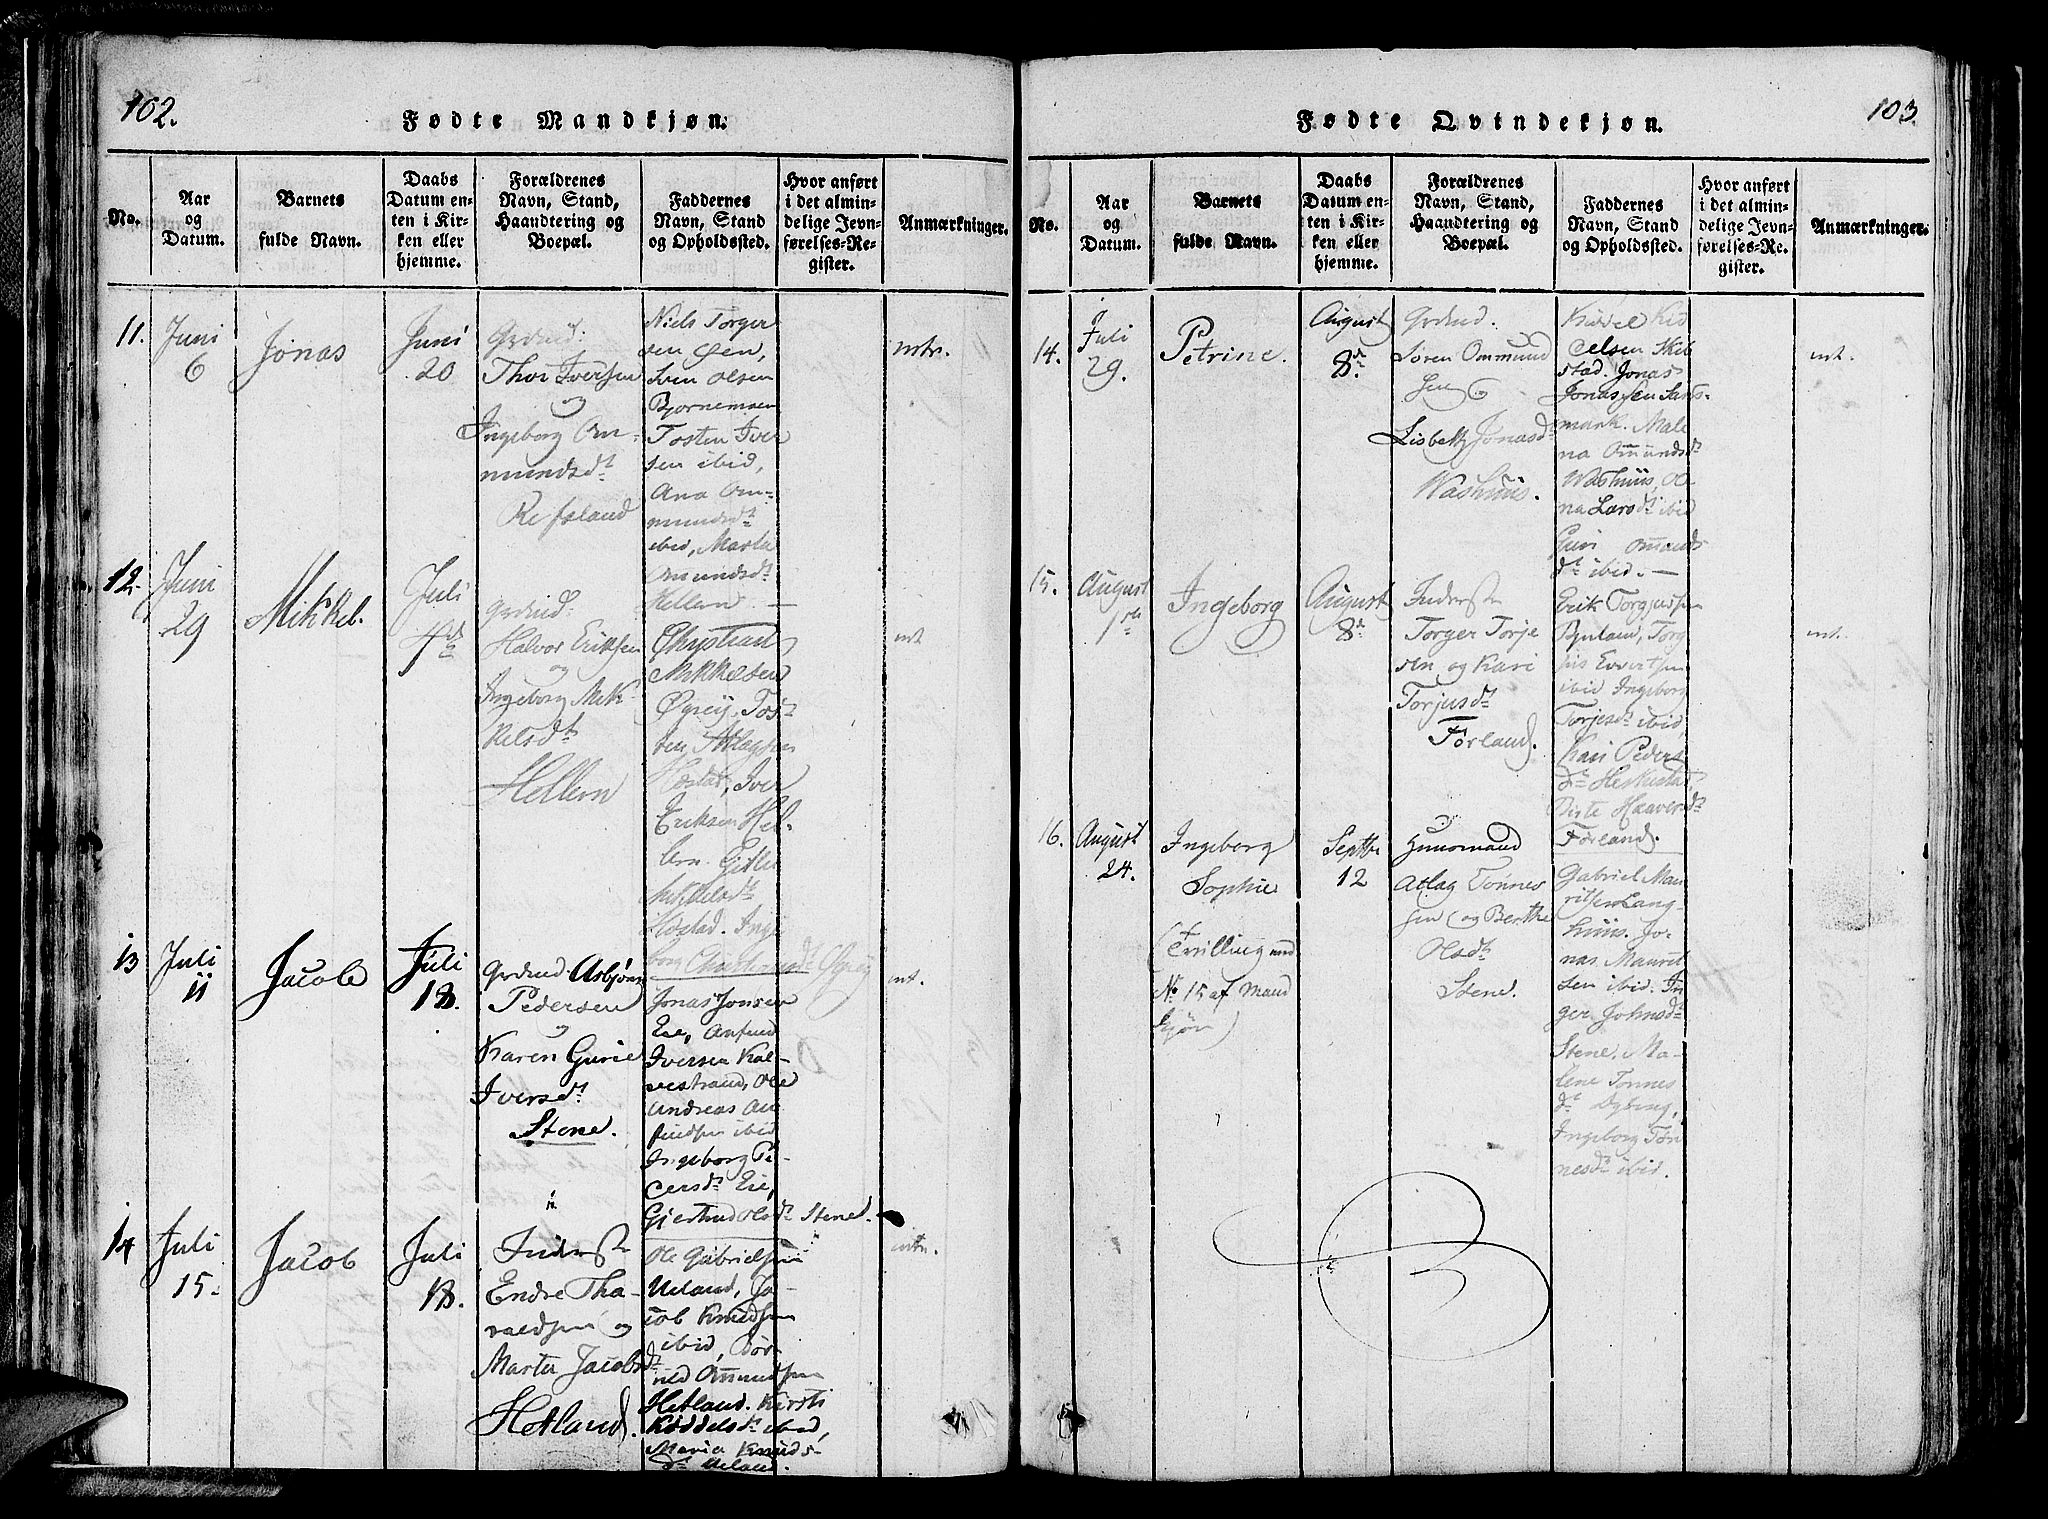 102.
Fødte Mandkjøn.
No.
Aar
og
Datum.
Barnets
fulde Navn.
Daabs
Datum en-
ten i Kir-
ken eller
hjemme.
Forældrenes
Navn, Stand,
Haandtering og
Boepæl.
Faddernes
Navn, Stand
og Opholdssted.
Hvor anført
i det almin-
delige Jevn-
førelses-Re-
gister.
Anmærkninger.
11.
Juni
6
Jonas
Juni
20
Grdmd:
Thor Iversen
og
Ingeborg Om-
mundsdt
Refsland
Niels Torger
sen
Sven Olsen
Bjornemoen
Tosten Iver
sen ibid,
Ana Om-
mundsdt
ibid, Marta
Omundsdt
Hellern. —
12.
Juni
29
Mikkel.
Juli
4de
Grdmd:
Halvor Eriksen
og
Ingeborg Mik-
kelsdt
Hellern
Christian
Mikkelsen
Øgreÿ, Tos-
ten Atlagsen
Hæstad, Iver
Eriksen Hel-
lern.
Mikkelsdt
Hæstad. Inge
borg
mt
13
Juli
11
Jacob
Juli
18.
Grdmd. Asbjørn
Pedersen
og
Karen Gurie
Iversdt
Stene.
Jonas Jonsen
Eie, Anfind
Iversen Kal-
vestrand, Ole
Andreas An-
findsen ibid
Ingeborg Pe-
dersdt Eie,
Giertrud Olsdt Stene.
mt.
14
Juli
15.
Jacob
Juli
18.
Inderst
Endre Tha-
raldsen og
Marta Jacobsdt
Hetland.
Ole Gabrielsen
Ueland, Ja-
cob Knudsen
ibid,
Ommundsen
Hetland. Kirsti
Kiddelsdt ibid,
Maria Knuds-
dt Ueland.
103.
Fødte Qvindekjøn.
No.
Aar
og
Datum.
Barnets
fulde Navn.
Daabs
Datum en-
ten i Kir-
ken eller
hjemme.
Forældrenes
Navn, Stand,
Haandtering og
Boepæl.
Faddernes
Navn, Stand
og Opholdssted.
Hvor anført
i det almin-
delige Jevn-
førelses-Re-
gister.
Anmærkninger.
14.
Juli
29.
Petrine.
August
8de
Grdmd.
Søren Ommund
sen og
Lisbeth Jonasdt
Washuus.
Kiddel Kid
delsen Skib
stad. Jonas
Jonassen Sans-
mark. Male
na Omundsdt
Washuus, Ole
na Larsdt ibid
Guri Omunds
dt ibid. —
mt.
15.
August
1ste
Ingeborg
August
8de
Inderst
Torger Torje
sen og Kari
Torjusdt
Førland.
Erik Torgjussen
Bruland, Torg
Evertsen
ibid Ingeborg
Torjesdt ibid,
Kari Peders
dt Heskestad,
Haaversdt
Førland.
mt.
16.
August
24.
Ingeborg
Sophie
(Tvilling med
No 15 af Mand
kjøn)
Septbr
12
Huusmand
Atlag Tønnes
sen og Berthe
Olsdt
Stene.
Gabriel Mau
ritsen Lang-
huus. Jo-
nas Maurit
sen ibid. In
ger Johnsdt
Stene. Ma-
lene Tønnes
dt Dybing,
Ingeborg Tøn
nesdt ibid.